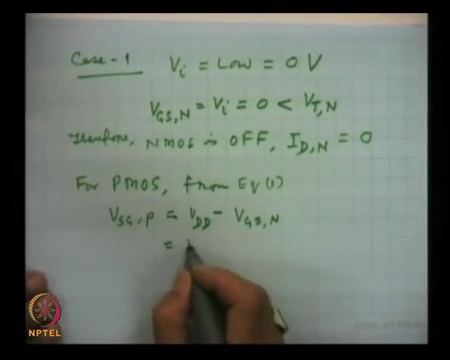 Case-1 Vi = Low = 0 V
VGS,N = Vi = 0 < VT,N
Therefore, NMOS is OFF, ID,N = 0
For PMOS, from Eq(1)
VSG,P = VDD - VGS,N
=
NPTEL